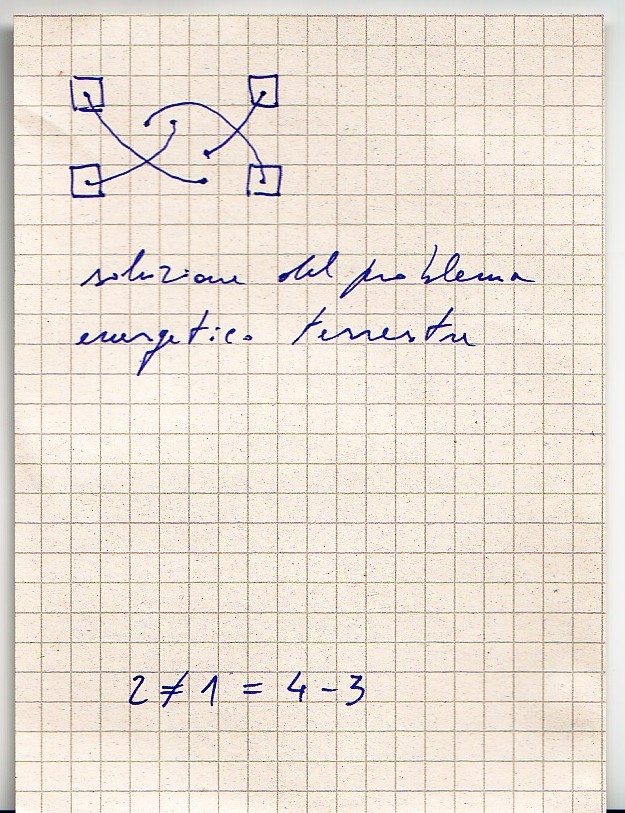 soluzione del problema
energetico terrestre
2 ≠ 1 = 4 - 3